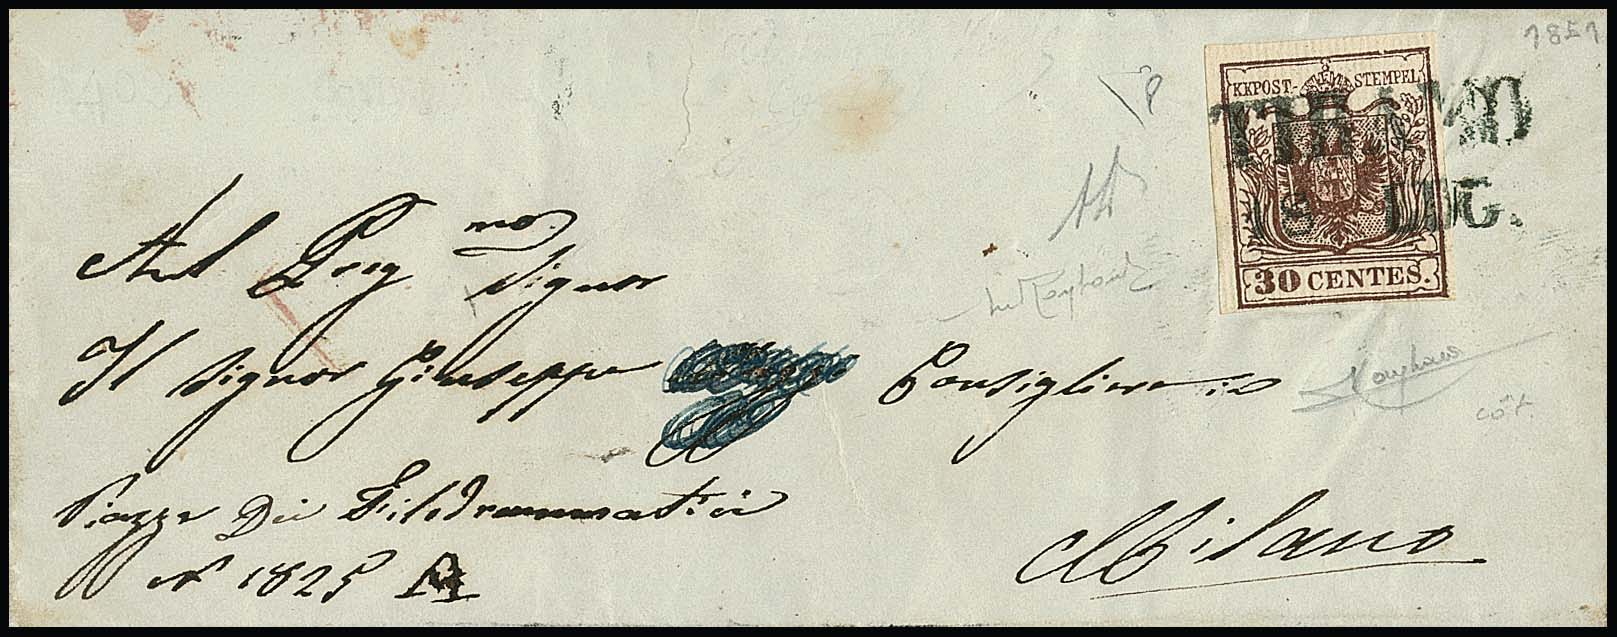 1851
KKPOST-STEMPEL
LUG.
30 CENTES.
Al Preg.mo Signor
Il Signor Giuseppe Consigliere
Piazza Dei Filodrammatici
N 1825 A
Milano